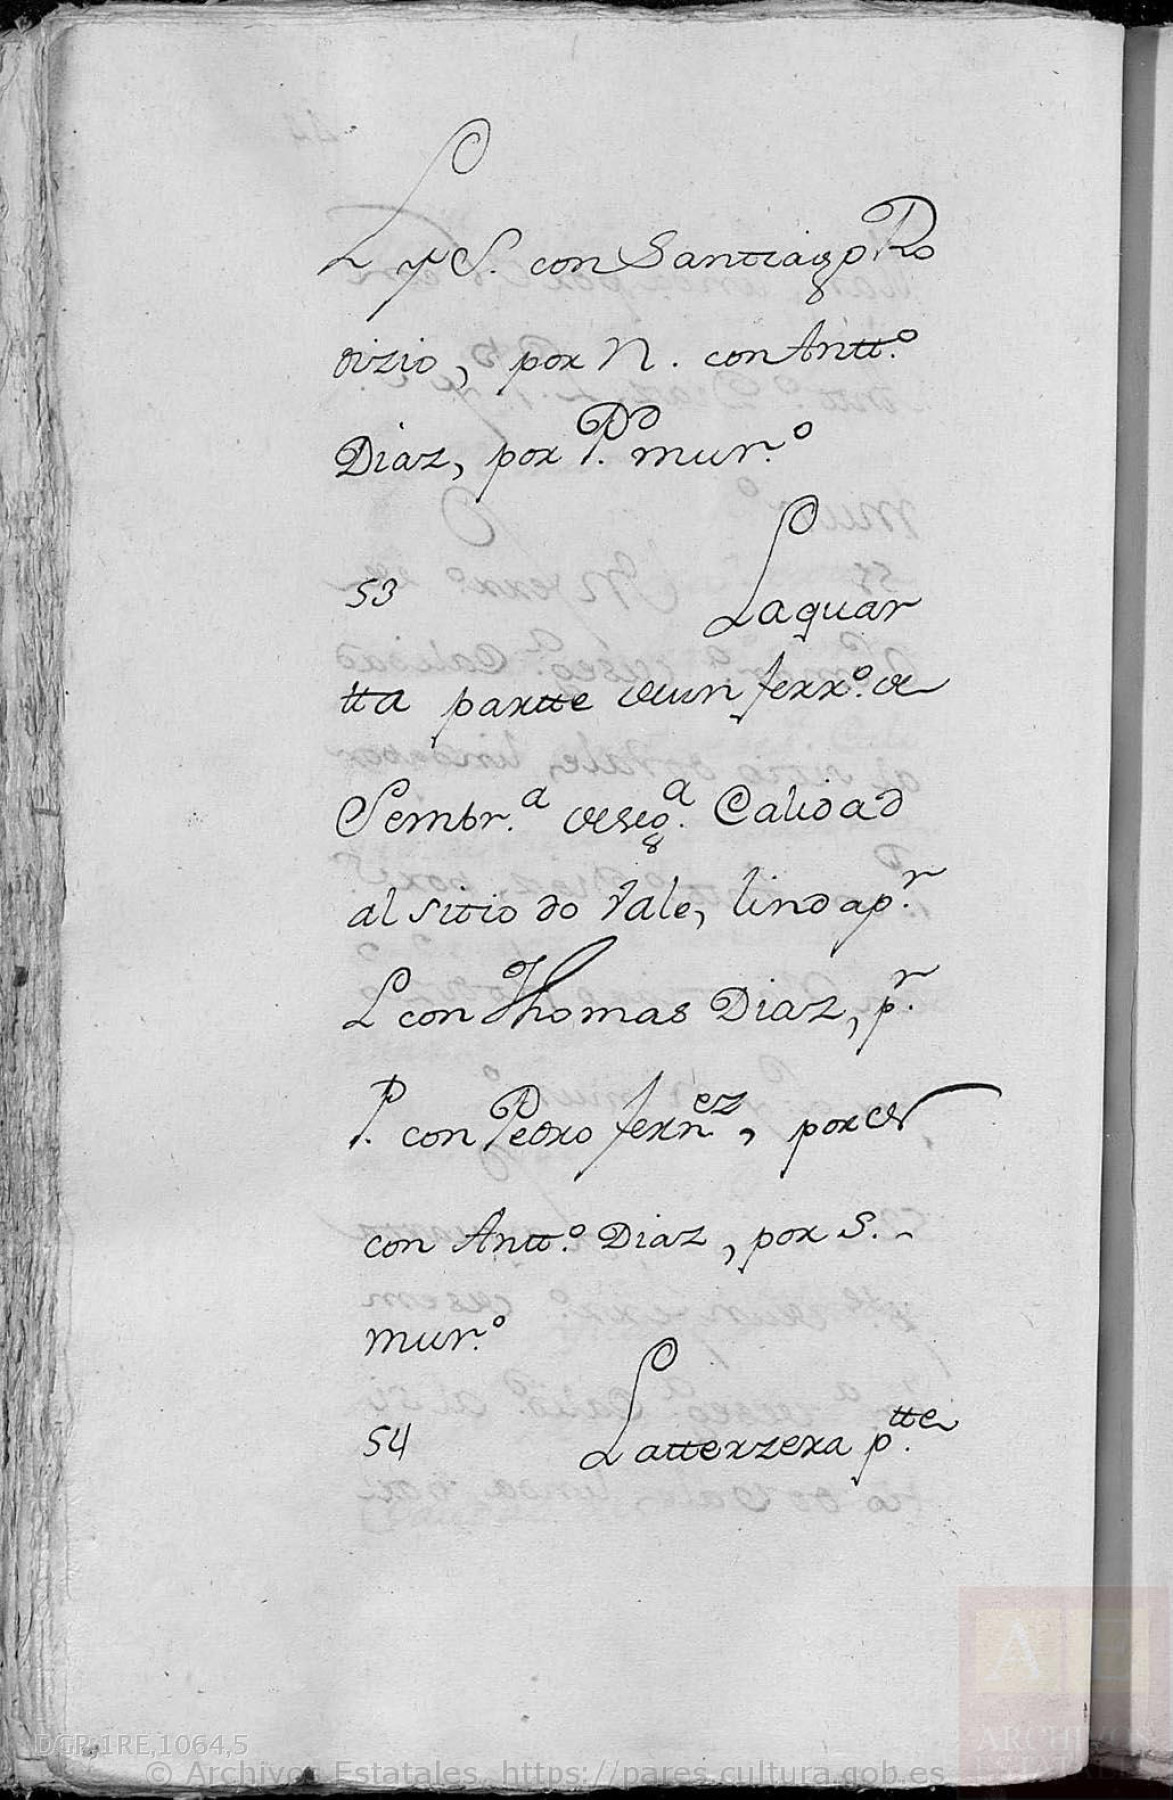 L y S. con Santtiago Ro
drizio, por N. con Antt.º
Diaz, por P. mur.º
53 La quar
tta partte de un ferr.º de
Sembr.ª de seg.ª Calidad
al sitio do Vale, linda p.r
L con Thomas Diaz, p.r
P. con Pedro fern.ez, por el V
con Antt.º Diaz, por S.
mur.º
54 La tterzera p.tte
DGP,1RE,1064,5
© Archivos Estatales, https://pares.cultura.gob.es
AE
ARCHIVOS
ESTATALES